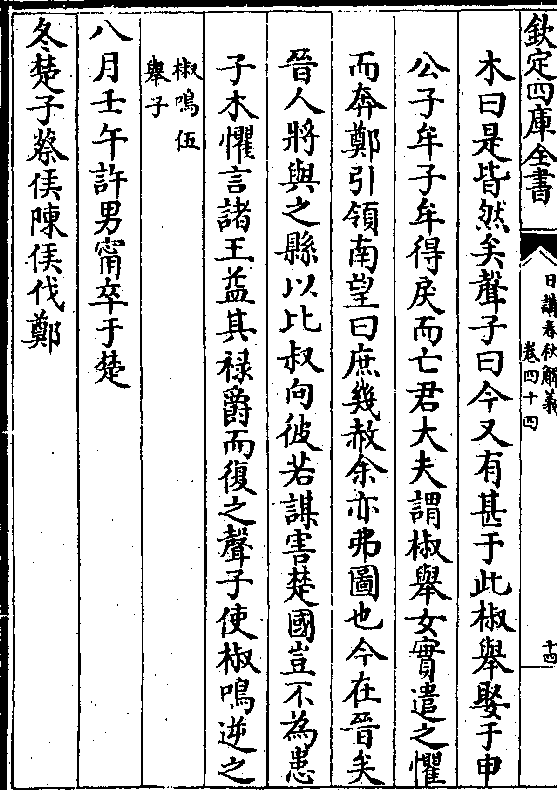 欽定四庫全書
日講春秋解義
卷四十四
十四
木曰是皆然矣聲子曰今又有甚于此椒舉娶于申
公子牟子牟得戾而亡君大夫謂椒舉女實遣之懼
而奔鄭引領南望曰庶幾赦余亦弗圖也今在晉矣
晉人將與之縣以比叔向彼若謀害楚國豈不為患
子木懼言諸王益其祿爵而復之聲子使椒鳴逆之
椒鳴伍
舉子
八月壬午許男甯卒于楚
冬楚子蔡侯陳侯伐鄭